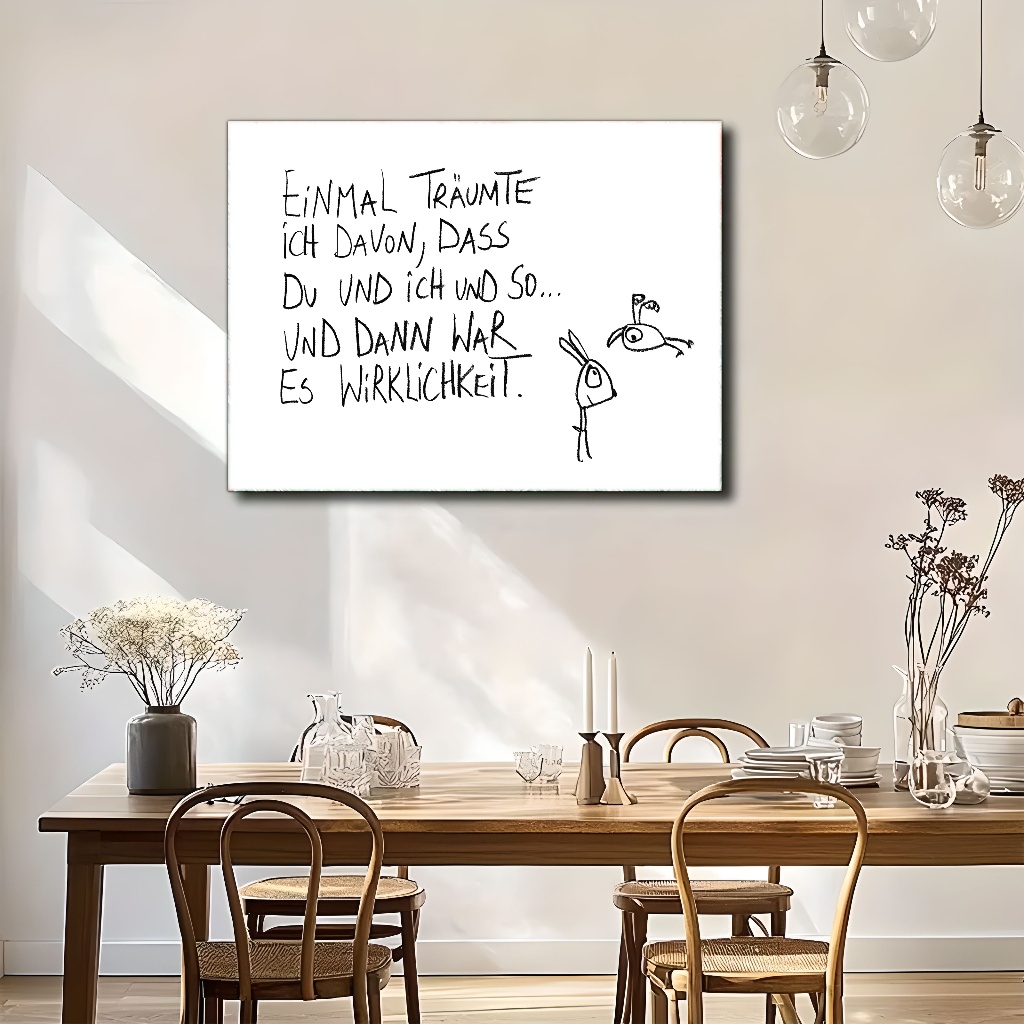 EiNMAL TRÄUMTE
iCH DAVON, DASS
DU UND iCH UND SO...
UND DANN WAR
ES WiRKLiCHKEiT.